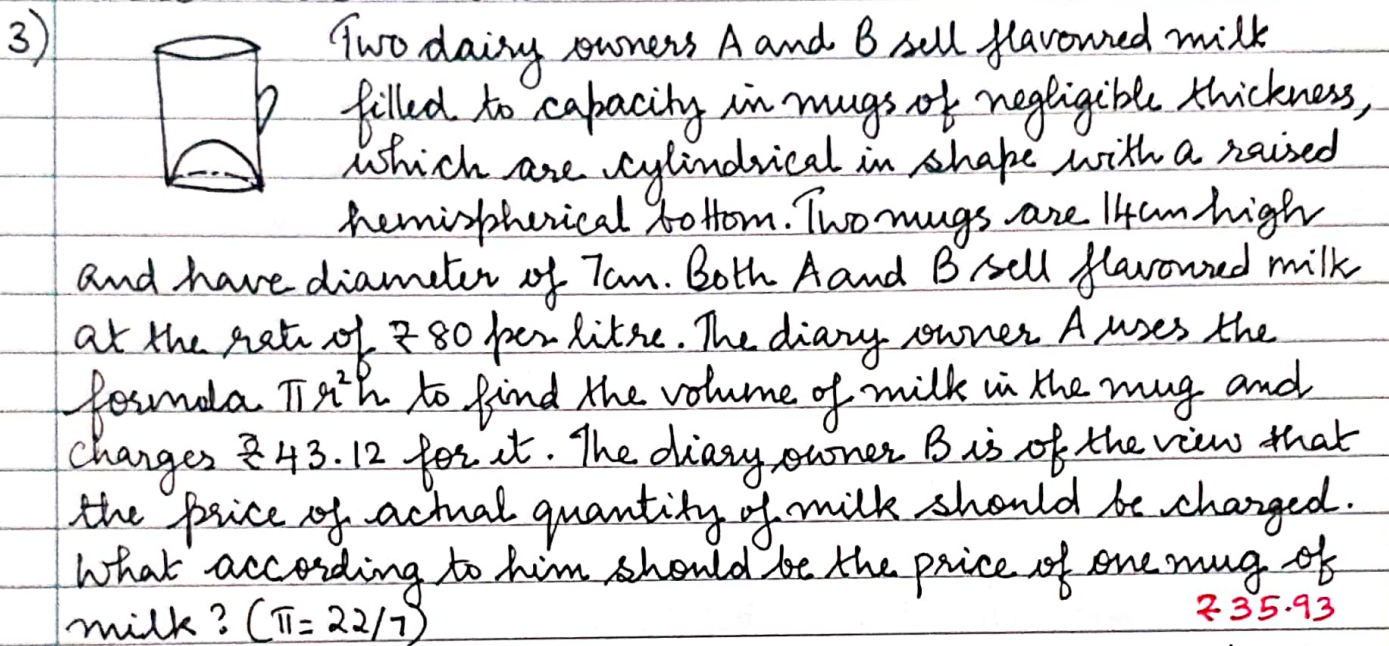 3) Two dairy owners A and B sell flavoured milk
filled to capacity in mugs of negligible thickness,
which are cylindrical in shape with a raised
hemispherical bottom. Two mugs are 14cm high
and have diameter of 7cm. Both A and B sell flavoured milk
at the rate of ₹80 per litre. The diary owner A uses the
formula πr²h to find the volume of milk in the mug and
charges ₹43.12 for it. The diary owner B is of the view that
the price of actual quantity of milk should be charged.
What according to him should be the price of one mug of
milk? (π= 22/7) ₹35.93